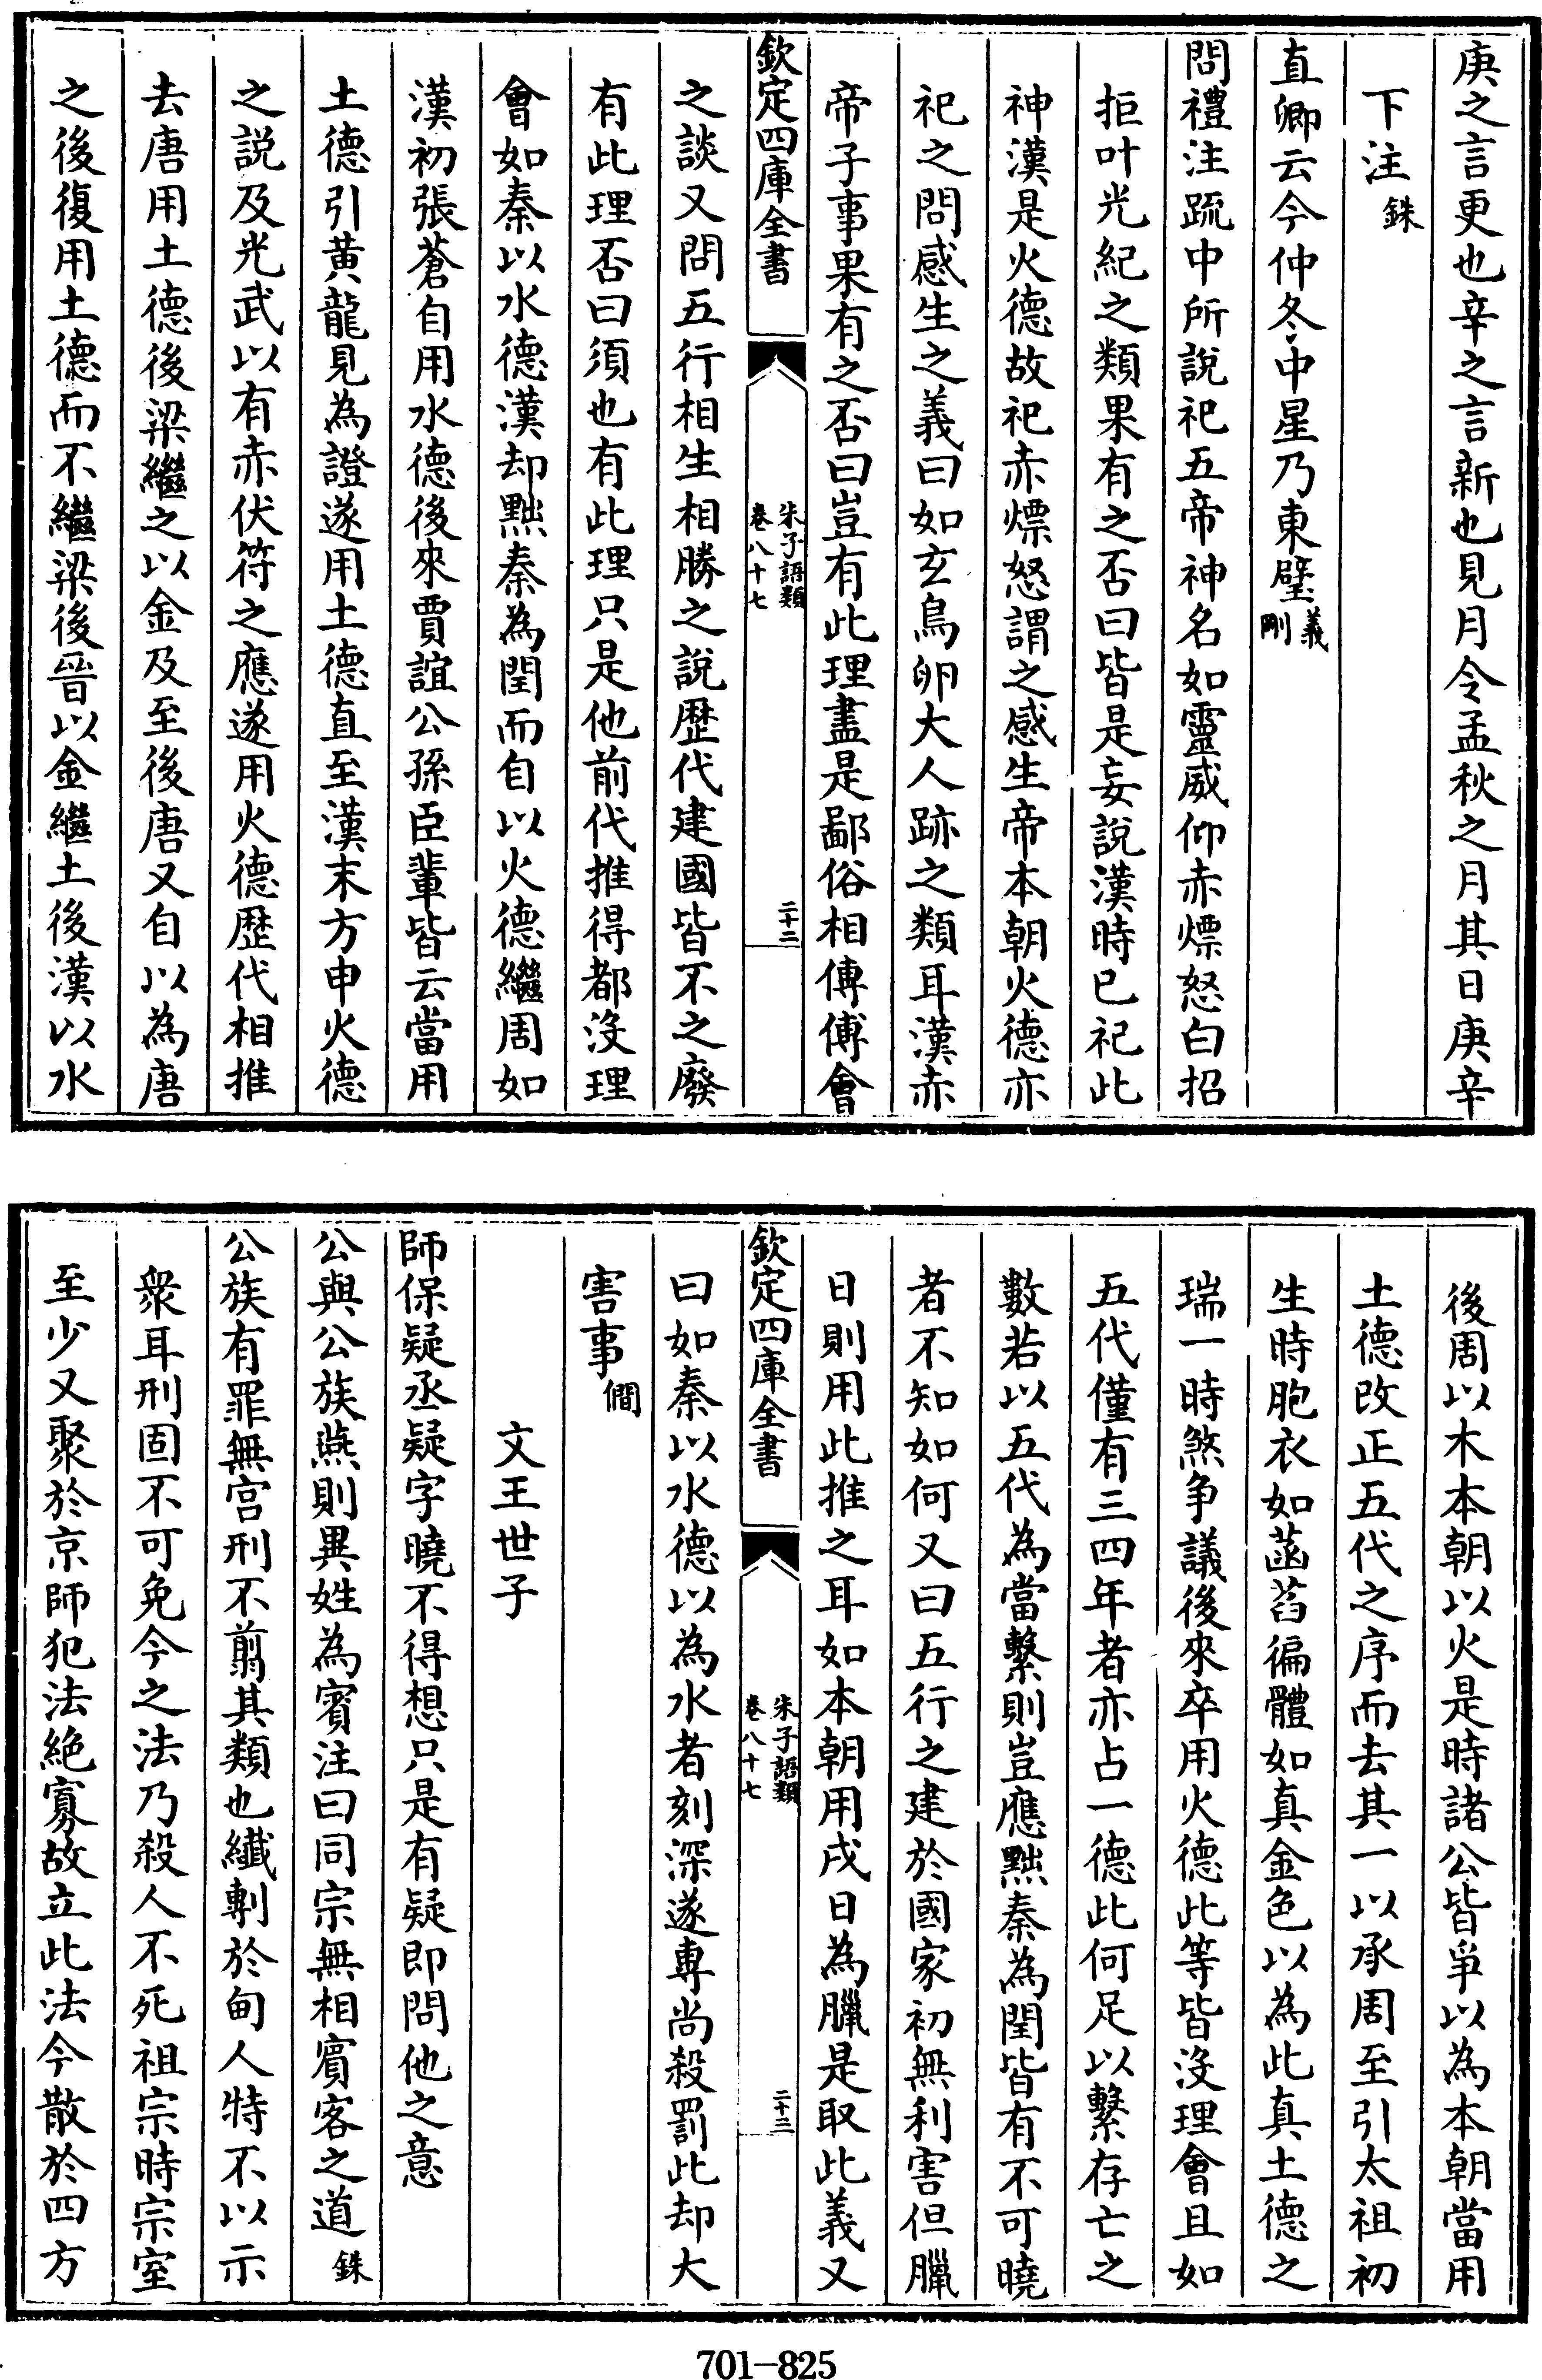 庚之言更也辛之言新也見月令孟秋之月其日庚辛
下注銖
直卿云今仲冬中星乃東壁義剛
問禮注疏中所說祀五帝神名如靈威仰赤熛怒白招
拒叶光紀之類果有之否曰皆是妄說漢時已祀此
神漢是火德故祀赤熛怒謂之感生帝本朝火德亦
祀之問感生之義曰如玄鳥卵大人跡之類耳漢赤
帝子事果有之否曰豈有此理盡是鄙俗相傳傅會
欽定四庫全書
朱子語類
卷八十七
二十二
之談又問五行相生相勝之說歷代建國皆不之廢
有此理否曰須也有此理只是他前代推得都沒理
會如秦以水德漢却黜秦為閏而自以火德繼周如
漢初張蒼自用水德後來賈誼公孫臣輩皆云當用
土德引黃龍見為證遂用土德直至漢末方申火德
之説及光武以有赤伏符之應遂用火德歷代相推
去唐用土德後梁繼之以金及至後唐又自以為唐
之後復用土德而不繼梁後晉以金繼土後漢以水
後周以木本朝以火是時諸公皆爭以為本朝當用
土德改正五代之序而去其一以承周至引太祖初
生時胞衣如菡萏徧體如真金色以為此真土德之
瑞一時煞争議後來卒用火德此等皆沒理會且如
五代僅有三四年者亦占一德此何足以繫存亡之
數若以五代為當繫則豈應黜秦為閏皆有不可曉
者不知如何又曰五行之建於國家初無利害但臘
日則用此推之耳如本朝用戌日為臘是取此義又
欽定四庫全書
朱子語類
卷八十七
二十三
曰如秦以水德以為水者刻深遂專尚殺罰此却大
害事僩
文王世子
師保疑丞疑字曉不得想只是有疑即問他之意
公與公族燕則異姓為賓注曰同宗無相賓客之道銖
公族有罪無宮刑不翦其類也纎剸於甸人特不以示
衆耳刑固不可免今之法乃殺人不死祖宗時宗室
至少又聚於京師犯法絶寡故立此法今散於四方
701-825